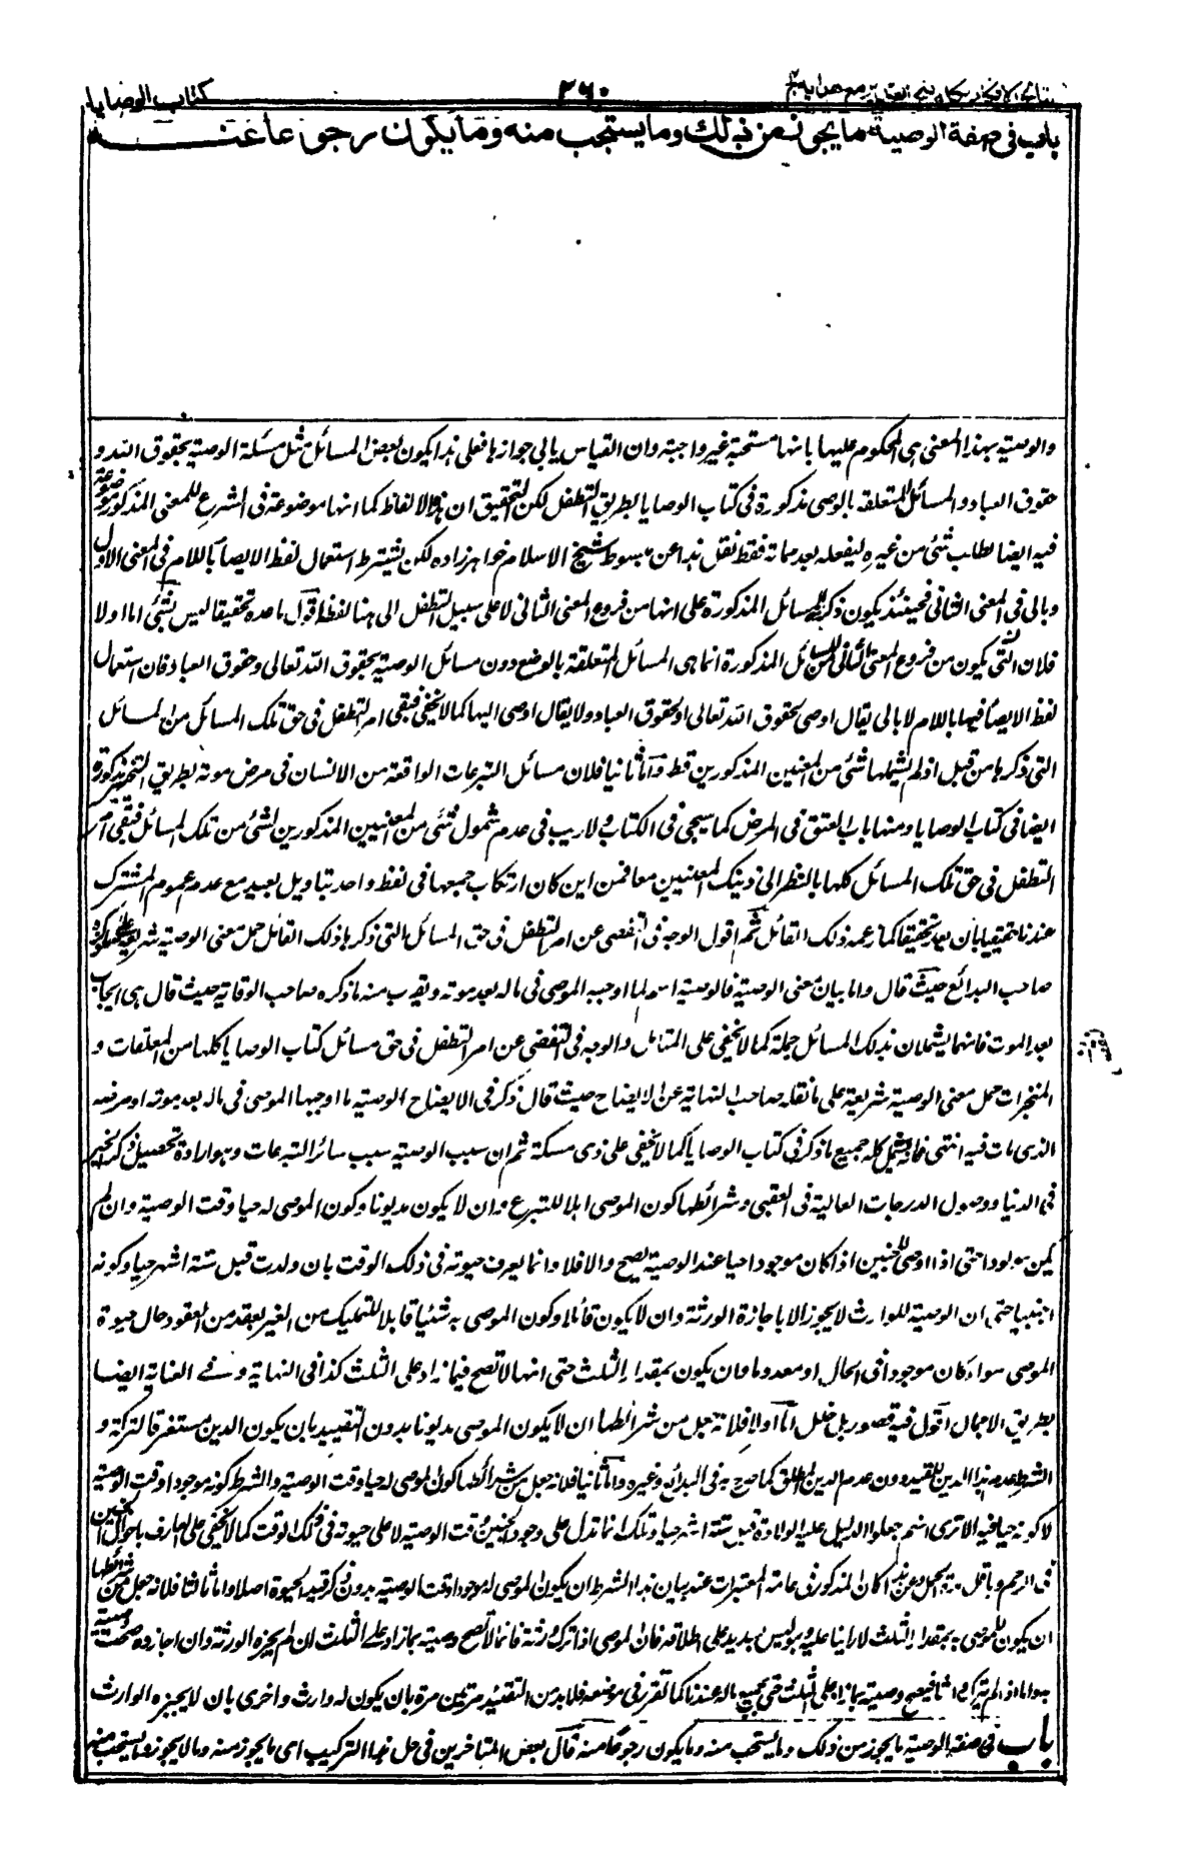 نتائج الافكار تكملة فتح القدير مع هدايه ج ٤ ٢٦٠ كتاب الوصايا
باب في صفة الوصية ما يجوز من ذلك وما يستحب منه وما يكون رجوعا عنه
والوصية بهذا المعنى هى المحكوم عليها بانها مستحبة غير واجبة وان القياس يابى جوازها فعلى هذا يكون بعض المسائل مثل مسئلة الوصية بحقوق الله و
حقوق العباد والمسائل المتعلقة بالوصى مذكورة فى كتاب الوصايا بطريق التطفل لكن التحقيق ان هذه الالفاظ كما انها موضوعة فى الشرع للمعنى المذكور موضوعة
فيه ايضا لطلب شئ من غيره ليفعله بعد مماته فقط نقل هذا عن مبسوط شيخ الاسلام خواهر زاده لكن يشترط استعمال لفظ الايصاء باللام فى المعنى الاول
وبالى فى المعنى الثانى فحينئذ يكون ذكر المسائل المذكورة على انها من فروع المعنى الثانى لا على سبيل التطفل الى هنا لفظه اقول ما عده تحقيقا ليس بشئ اما اولا
فلان التى يكون من فروع المعنى الثانى من المسائل المذكورة انما هى المسائل المتعلقة بالوصى دون مسائل الوصية بحقوق الله تعالى وحقوق العباد فان استعمال
لفظ الايصاء فيها باللام لا بالى يقال اوصى بحقوق الله تعالى او بحقوق العباد ولا يقال اوصى اليها كما لا يخفى فبقى امر التطفل فى حق تلك المسائل من المسائل
التى ذكرها من قبل اذ لم يشملها شئ من المعنيين المذكورين قط واما ثانيا فلان مسائل التبرعات الواقعة من الانسان فى مرض موته بطريق التنجيز مذكورة
ايضا فى كتاب الوصايا ومنها باب العتق فى المرض كما سيجئ فى الكتاب ولا ريب فى عدم شمول شئ من المعنيين المذكورين لشئ من تلك المسائل فبقى امر
التطفل فى حق تلك المسائل كلها بالنظر الى ذينك المعنيين معا فمن اين كان ارتكاب جمعهما فى لفظ واحد بتاويل بعيد مع عدم عموم المشترك
عندنا حقيقيا بان يعد تحقيقا كما زعمه ذلك القائل ثم اقول الوجه فى التفصى عن امر التطفل فى حق المسائل التى ذكرها ذلك القائل حمل معنى الوصية شريعة على ما ذكره
صاحب البدائع حيث قال واما بيان معنى الوصية فالوصية اسم لما اوجبه الموصى فى ماله بعد موته ويقرب منه ما ذكره صاحب الوقاية حيث قال هى ايجاب
بعد الموت فانهما يشملان تلك المسائل جملة كما لا يخفى على المتامل والوجه فى التفصى عن امر التطفل فى حق مسائل كتاب الوصايا كلها من المعلقات و
المنجزات حمل معنى الوصية شريعة على ما نقله صاحب النهاية عن الايضاح حيث قال ذكر فى الايضاح الوصية ما اوجبها الموصى فى ماله بعد موته او مرضه
الذى مات فيه انتهى فانه يشمل كله جميع ما ذكر فى كتاب الوصايا كما لا يخفى على ذى مسكة ثم ان سبب الوصية سبب سائر التبرعات وهو ارادة تحصيل ذكر الخير
فى الدنيا ووصول الدرجات العالية فى العقبى وشرائطها كون الموصى اهلا للتبرع وان لا يكون مديونا وكون الموصى له حيا وقت الوصية وان لم
يكن مولودا حتى اذا اوصى للجنين اذا كان موجودا حيا عند الوصية يصح والا فلا وانما يعرف حيوته فى ذلك الوقت بان ولدت قبل ستة اشهر حيا وكونه
اجنبيا حتى ان الوصية للوارث لا يجوز الا باجازة الورثة وان لا يكون قاتلا وكون الموصى به شئيا قابلا للتمليك من الغير بعقد من العقود حال حيوة
الموصى سواء كان موجودا فى الحال او معدوما وان يكون بمقدار الثلث حتى انها لا تصح فيما زاد على الثلث كذا فى النهاية وفى العناية ايضا
بطريق الاجمال اقول فيه قصور بل خلل اما اولا فلانه جعل من شرائطها ان لا يكون الموصى مديونا بدون التقييد بان يكون الدين مستغرقا لتركته و
الشرط عدم هذا الدين المقيد دون عدم الدين المطلق كما صرح به فى البدائع وغيره واما ثانيا فلانه جعل من شرائطها كون الموصى له حيا وقت الوصية والشرط كونه موجودا وقت الوصية
لا كونه حيا فيه الا ترى انهم جعلوا الدليل عليه الولادة قبل ستة اشهر حيا وتلك انما تدل على وجود الجنين وقت الوصية لا على حيوته فى ذلك الوقت كما لا يخفى على العارف باحوال الجنين
فى الرحم وباقل مدة الحمل وعن هذا كان المذكور فى عامة المعتبرات عند بيان هذا الشرط ان يكون الموصى له موجودا وقت الوصية بدون ذكر قيد الحيوة اصلا واما ثالثا فلانه جعل من شرائطها
ان يكون الموصى به بمقدار الثلث لا زائدا عليه وهو ليس بسديد على اطلاقه فان الموصى اذا ترك ورثة فانما لا تصح وصيته بما زاد على الثلث ان لم يجزه الورثة وان اجازوه صحت وصيته
به واما اذا لم يترك وارثا فيصح وصيته بما زاد على الثلث حتى بجميع ماله عندنا كما تقرر فى موضعه فلا بد من التقييد مرتين مرة بان يكون له وارث واخرى بان لا يجيزه الوارث
باب فى صفة الوصية ما يجوز من ذلك وما يستحب منه وما يكون رجوعا عنه قال بعض المتاخرين فى حل هذا التركيب اى ما يجوز منه وما لا يجوز وما يستحب منه